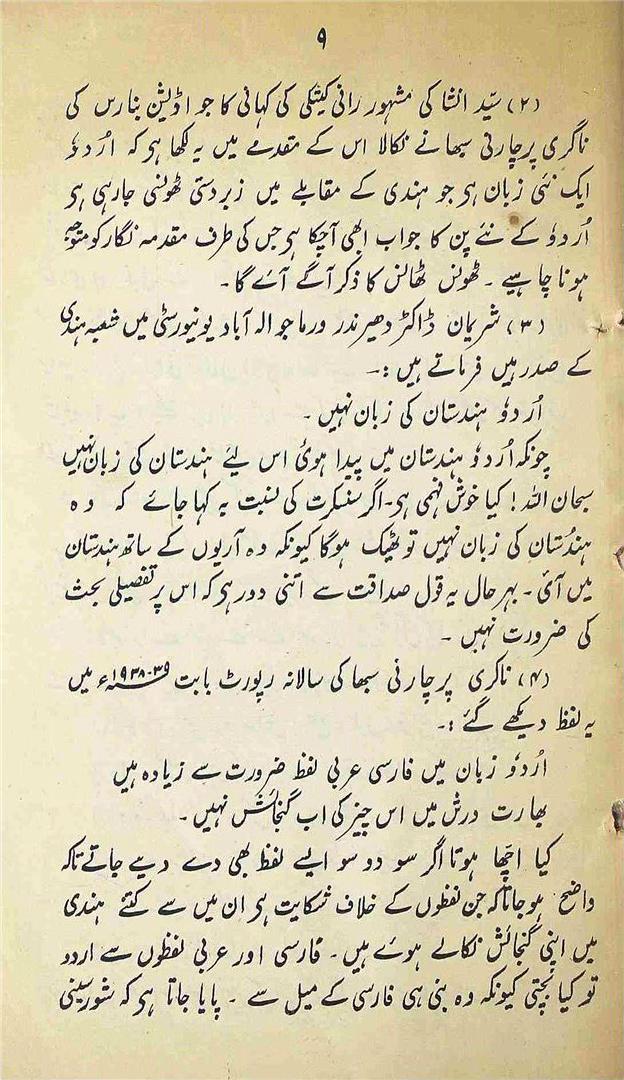 ۹
(۲) سیّد انشا کی مشہور رانی کیتکی کی کہانی کا جو اڈیشن بنارس کی
ناگری پرچارنی سبھا نے نکالا اس کے مقدمے میں یہ لکھا ہر کہ اُردوٗ
ایک نئی زبان ہر جو ہندی کے مقابلے میں زبردستی ٹھونسی جارہی ہر
اُردوٗ کے نئے پن کا جواب ابھی آچکا ہر جس کی طرف مقدمہ نگار کو متوجہ
ہونا چاہیے ۔ ٹھونس ٹھانس کا ذکر آگے آے گا ۔
(۳) شریمان ڈاکٹر دھیرندر ورما جو الہ آباد یونیورسٹی میں شعبہ ہندی
کے صدر ہیں فرماتے ہیں :۔
اُردوٗ ہندستان کی زبان نہیں ۔
چونکہ اُردوٗ ہندستان میں پیدا ہوئ اس لیے ہندستان کی زبان نہیں
سبحان اللہ ! کیا خوش فہمی ہر ۔ اگر سنسکرت کی نسبت یہ کہا جائے کہ وہ
ہندُستان کی زبان نہیں تو ٹھیک ہوگا کیونکہ وہ آریوں کے ساتھ ہندستان
میں آئ ۔ بہرحال یہ قول صداقت سے اتنی دور ہر کہ اس پر تفصیلی بحث
کی ضرورت نہیں ۔
(۴) ناگری پرچارنی سبھا کی سالانہ رپورٹ بابت ۳۹-۱۹۳۸ء میں
یہ لفظ دیکھے گئے :۔
اُردوٗ زبان میں فارسی عربی لفظ ضرورت سے زیادہ ہیں
بھارت ورش میں اس چیز کی اب گنجائش نہیں ۔
کیا اچھّا ہوتا اگر سو دو سو ایسے لفظ بھی دے دیے جاتے تاکہ
واضح ہوجاتا کہ جن لفظوں کے خلاف شکایت ہر ان میں سے کتنے ہندی
میں اپنی گنجائش نکالے ہوے ہیں ۔ فارسی اور عربی لفظوں سے اردو
تو کیا بچتی کیونکہ وہ بنی ہی فارسی کے میل سے ۔ پایا جاتا ہر کہ شورسینی